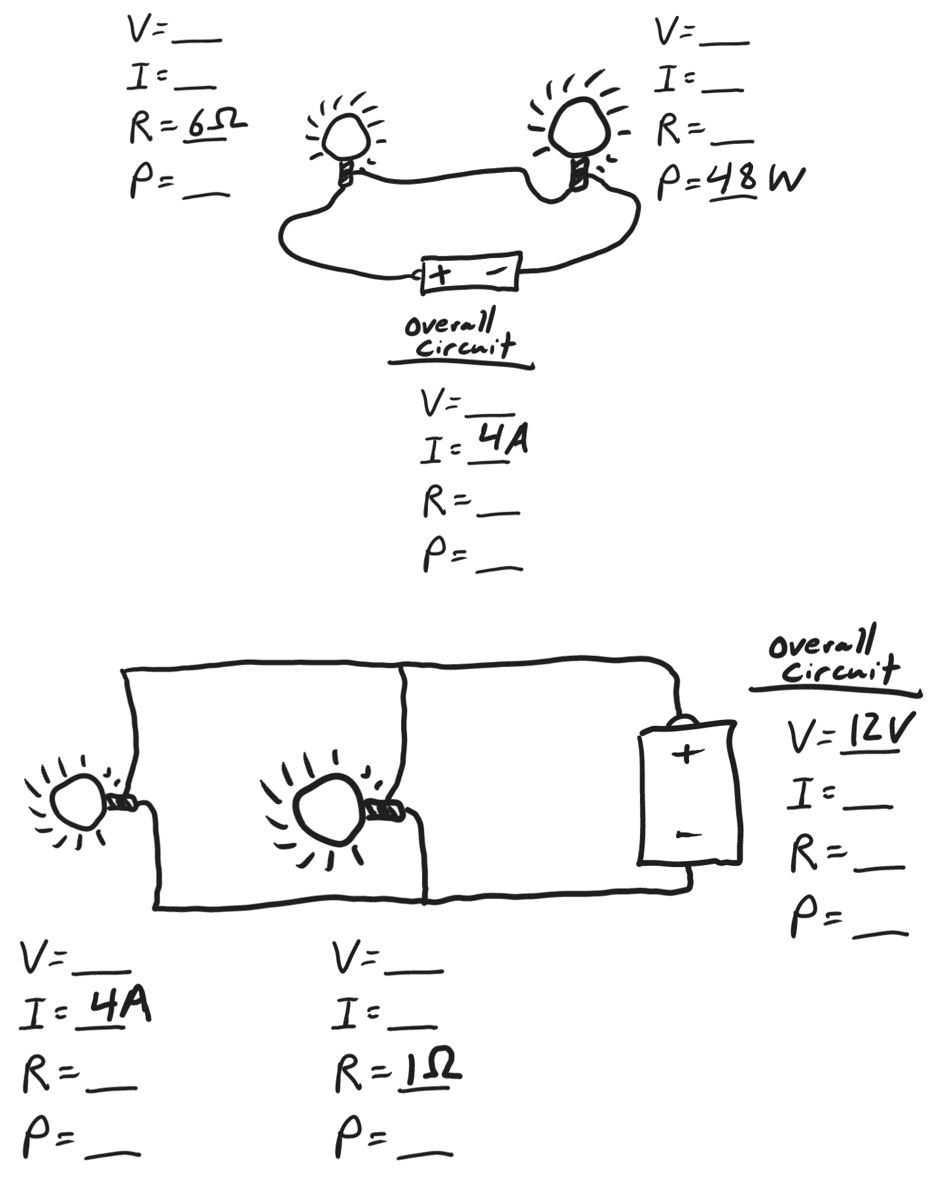 V=__
I=__
R=6Ω
P=__
V=__
I=__
R=__
P=48 W
+ -
Overall
Circuit
V=__
I=4A
R=__
P=__
Overall
Circuit
V=12V
I=__
R=__
P=__
+
-
V=__
I=4A
R=__
P=__
V=__
I=__
R=1Ω
P=__